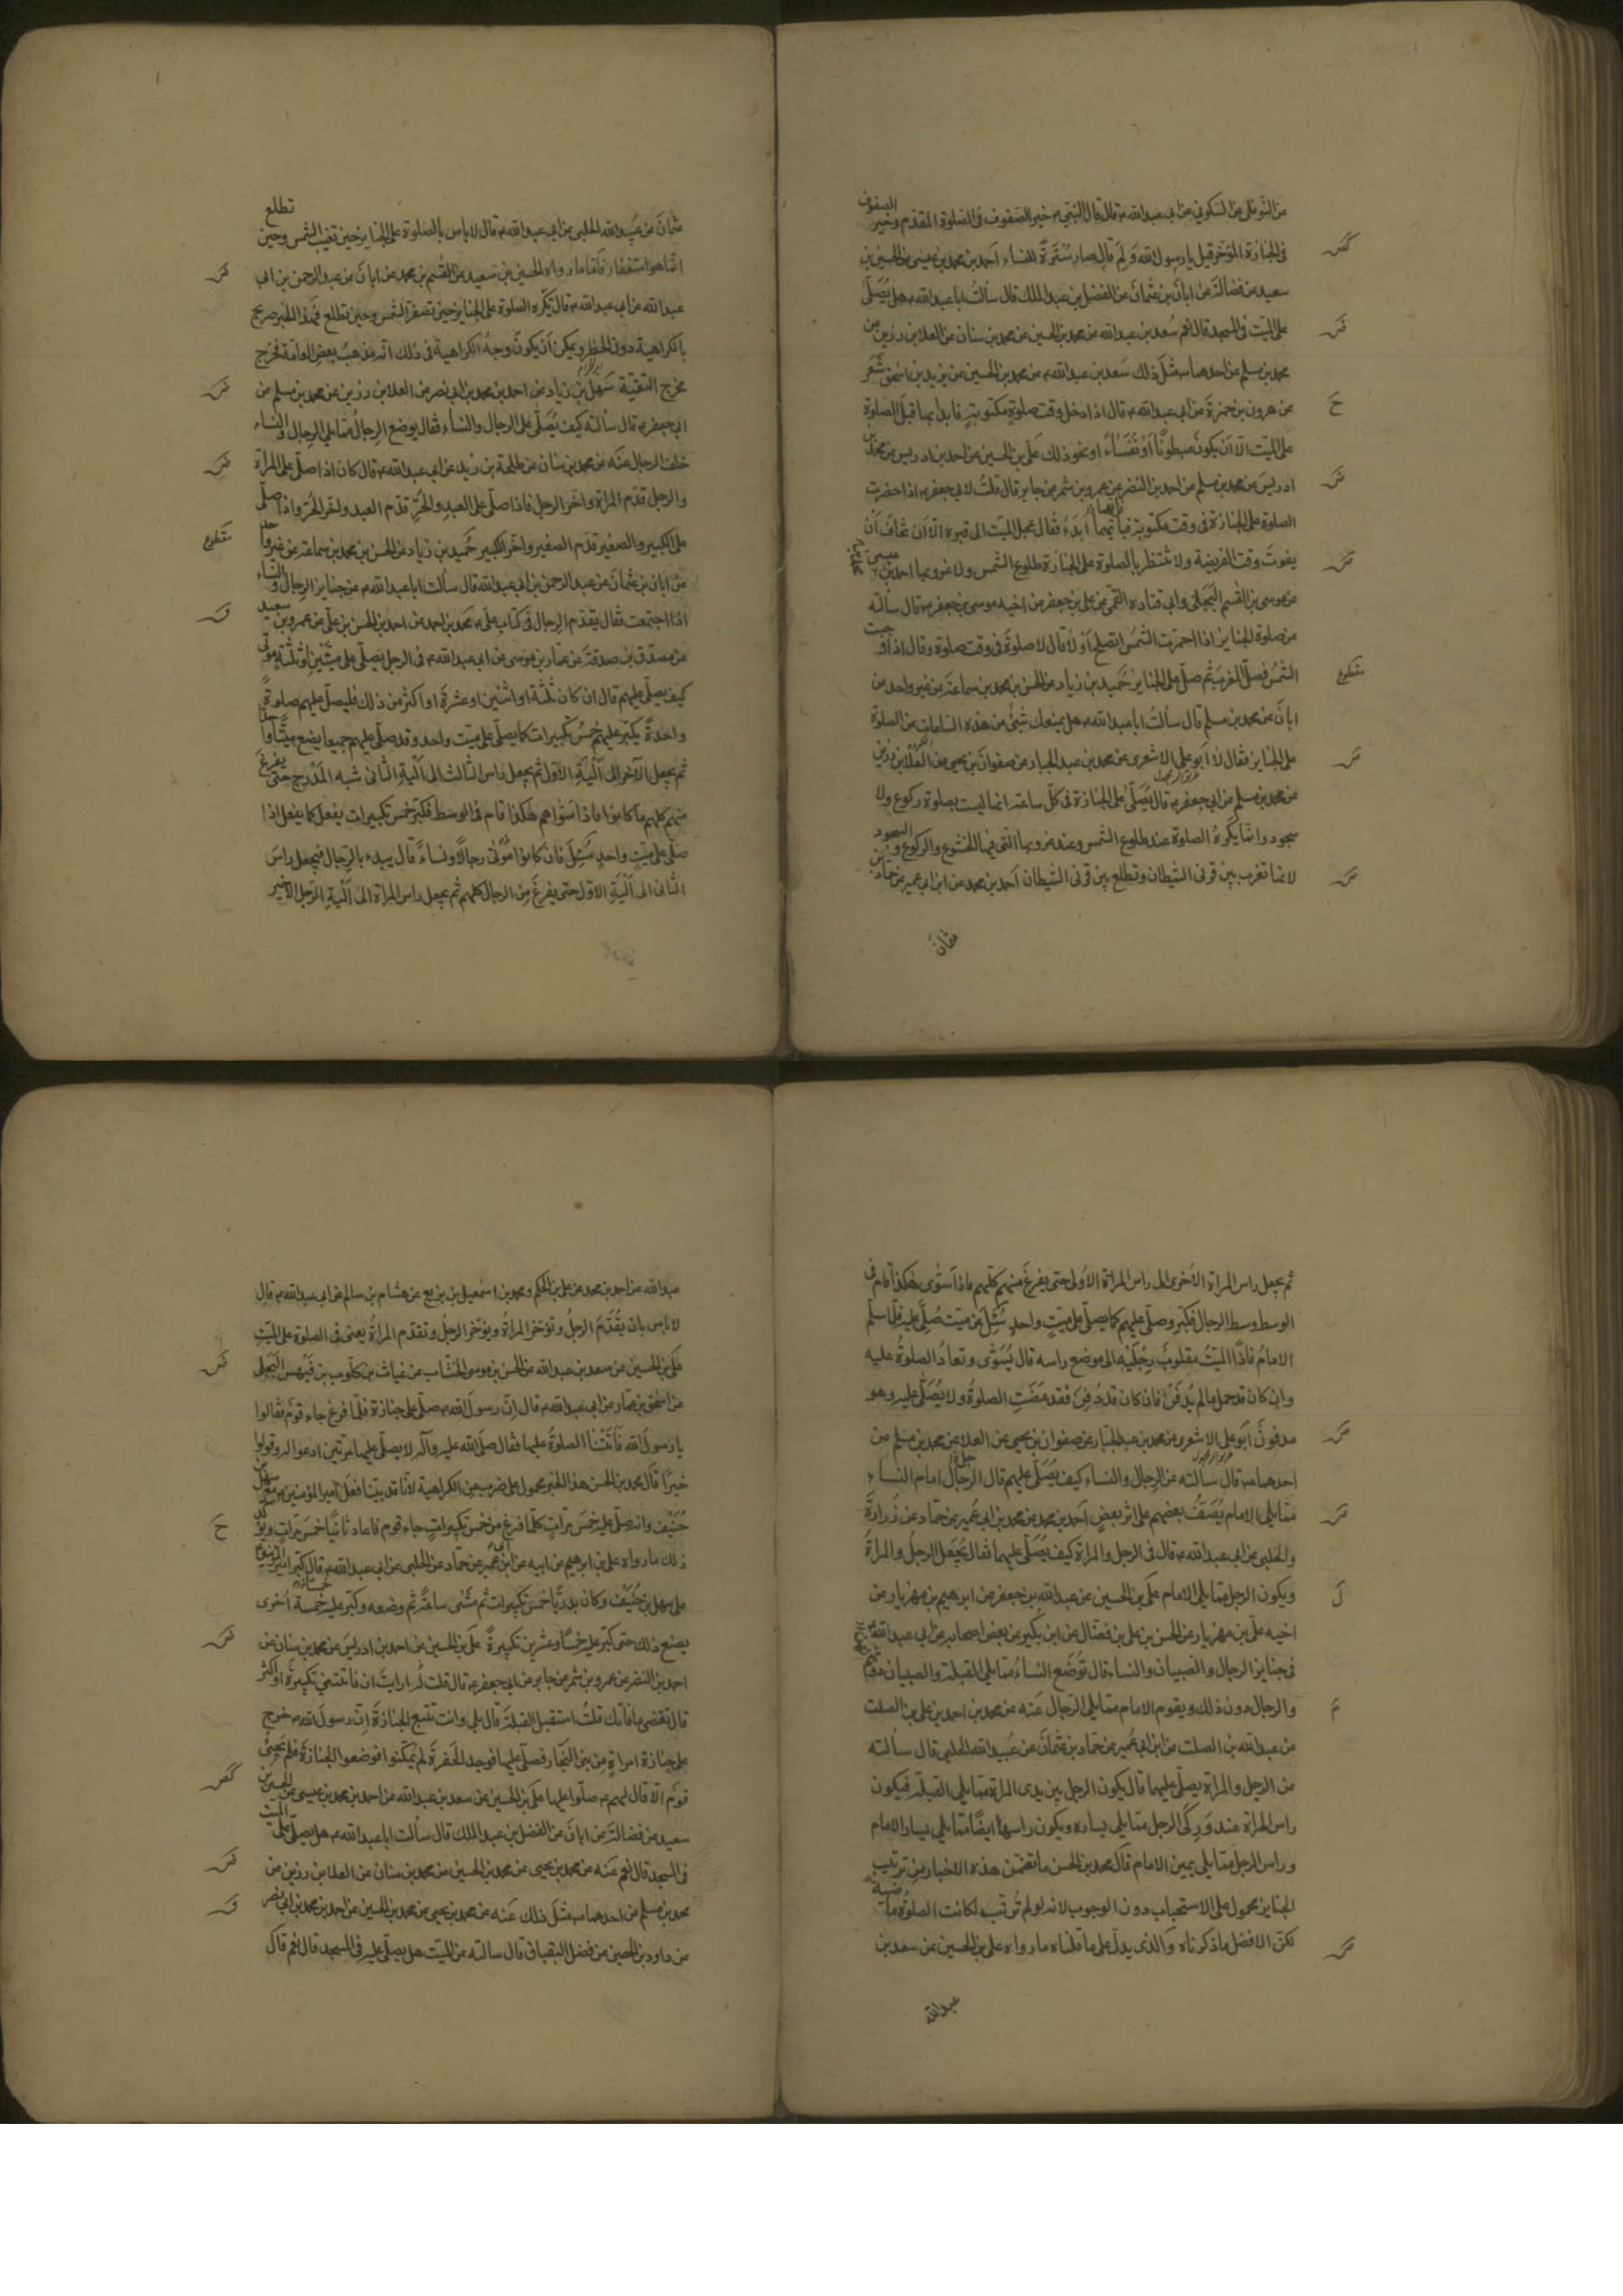 عن النوفلى عن السكونى عن ابى عبدالله ع قال قال النبى ص خير الصفوف فى الصلوة المقدم وخير الصفوف
فى الجنازة المؤخر قيل يا رسول الله ولم قال صار سترة للنساء احمد بن محمد بن عيسى عن الحسين بن
سعيد عن فضالة عن ابان بن عثمان عن الفضل بن عبد الملك قال سألت ابا عبدالله ع هل يصلى
على الميت فى المسجد قال نعم سعد بن عبدالله عن محمد بن الحسين عن محمد بن سنان عن العلا بن رزين عن
محمد بن مسلم عن احدهما ع مثل ذلك سعد بن عبدالله عن محمد بن الحسين عن يزيد بن اسحق شعر
عن هرون بن حمزة عن ابى عبدالله ع قال اذا دخل وقت صلوة مكتوبة فابدأ بها قبل الصلوة
على الميت الا ان يكون مبطونا او نفساء او نحو ذلك على بن الحسين عن احمد بن ادريس عن محمد بن
ادريس عن محمد بن مسلم عن احمد بن النضر عن عمرو بن شمر عن جابر قال قلت لابى جعفر ع اذا حضرت
الصلوة على الجنازة فى وقت مكتوبة فبايهما ابدء فقال عجل الميت الى قبره الا ان تخاف ان
يفوت وقت الفريضة ولا تنتظر بالصلوة على الجنازة طلوع الشمس ولا غروبها احمد بن عيسى
عن موسى بن القسم البجلى وابى قتادة القمى عن على بن جعفر عن اخيه موسى بن جعفر ع قال سألته
عن صلوة الجنايز اذا احمرت الشمس اتصلح او لا قال لا صلوة فى وقت صلوة وقال اذا وجبت
الشمس فصل المغرب ثم صل على الجنايز حميد بن زياد عن الحسن بن محمد بن سماعة عن غير واحد عن
ابان عن محمد بن مسلم قال سألت ابا عبدالله ع هل يمنعك شئ من هذه الساعات عن الصلوة
على الجنايز فقال لا ابو على الاشعرى عن محمد بن عبد الجبار عن صفوان بن يحيى عن العلا بن رزين
عن محمد بن مسلم عن ابى جعفر ع قال يصلى على الجنازة فى كل ساعة انها ليست بصلوة ركوع ولا
سجود وانما يكره الصلوة عند طلوع الشمس وعند غروبها التى فيها الخشوع والركوع والسجود
لانها تغرب بين قرنى الشيطان وتطلع بين قرنى الشيطان احمد بن محمد عن ابن ابى عمير عن حماد بن
عثمان
عثمان عن عبيد الله الحلبى عن ابى عبدالله ع قال لا باس بالصلوة على الجنايز حين تغيب الشمس وحين تطلع
انما هو استغفار فاما ما رواه الحسين بن سعيد عن القسم بن محمد عن ابان عن عبد الرحمن بن ابى
عبدالله عن ابى عبدالله ع قال تكره الصلوة على الجنايز حين تصفر الشمس وحين تطلع فهذا الخبر صريح
بالكراهية دون الحظر ويمكن ان يكون وجه الكراهية فى ذلك انه مذهب بعض العامة فخرج
مخرج التقية سهل بن زياد عن احمد بن محمد بن ابى نصر عن العلا بن رزين عن محمد بن مسلم عن
ابى جعفر ع قال سألته كيف يصلى على الرجال والنساء فقال يوضع الرجال مما يلى الرجال والنساء
خلف الرجال عنه عن محمد بن سنان عن طلحة بن زيد عن ابى عبدالله ع قال كان اذا صلى على المراة
والرجل قدم المراة واخر الرجل فاذا صلى على العبد والحر قدم العبد واخر الحر واذا صلى
على الكبير والصغير قدم الصغير واخر الكبير حميد بن زياد عن الحسن بن محمد بن سماعة عن غير واحد
عن ابان بن عثمان عن عبد الرحمن بن ابى عبدالله قال سألت ابا عبدالله ع عن جنايز الرجال والنساء
اذا اجتمعت فقال يقدم الرجال فى كتاب على ع محمد بن احمد عن احمد بن الحسن بن على عن عمرو بن سعيد
عن مصدق بن صدقة عن عمار بن موسى عن ابى عبدالله ع فى الرجل يصلى على ميتين او ثلثة موتى
كيف يصلى عليهم قال ان كان ثلثة او اثنين او عشرة او اكثر من ذلك فليصل عليهم صلوة
واحدة يكبر عليهم خمس تكبيرات كما يصلى على ميت واحد وقد صلى عليهم جميعا يضع ميتا واحدا
ثم يجعل الآخر الى الية الاول ثم يجعل راس الثالث الى الية الثانى شبه المدرج حتى يفرغ
منهم كلهم ما كانوا فاذا سواهم هكذا قام فى الوسط فكبر خمس تكبيرات يفعل كما يفعل اذا
صلى على ميت واحد سئل فان كانوا موتى رجالا ونساء قال يبدء بالرجال فيجعل راس
الثانى الى الية الاول حتى يفرغ من الرجال كلهم ثم يجعل راس المراة الى الية الرجل الاخير
ثم يجعل راس المراة الاخرى الى راس المراة الاولى حتى يفرغ منهم كلهم فاذا سوى هكذا قام فى
الوسط وسط الرجال فكبر وصلى عليهم كما يصلى على ميت واحد سئل عن ميت صلى عليه فلما سلم
الامام فاذا الميت مقلوب رجليه الى موضع راسه قال يسوى وتعاد الصلوة عليه
وان كان قد حمل ما لم يدفن فان كان قد دفن فقد مضت الصلوة ولا يصلى عليه وهو
مدفون ابو على الاشعرى عن محمد بن عبد الجبار عن صفوان بن يحيى عن العلا عن محمد بن مسلم عن
احدهما ع قال سألته عن الرجال والنساء كيف يصلى عليهم قال الرجال امام النساء
مما يلى الامام يصف بعضهم على اثر بعض احمد بن محمد عن محمد بن ابى عمير عن حماد عن زرارة
والحلبى عن ابى عبدالله ع قال فى الرجل والمراة كيف يصلى عليهما فقال يجعل الرجل والمراة
ويكون الرجل مما يلى الامام على بن الحسين عن عبدالله بن جعفر عن ابرهيم بن مهزيار عن
اخيه على بن مهزيار عن الحسن بن على بن فضال عن ابن بكير عن بعض اصحابه عن ابى عبدالله ع
فى جنايز الرجال والصبيان والنساء قال توضع النساء مما يلى القبلة والصبيان دونهم
والرجال دون ذلك ويقوم الامام مما يلى الرجال عنه عن محمد بن احمد بن على بن الصلت
عن عبدالله بن الصلت عن ابن ابى عمير عن حماد بن عثمان عن عبيد الله الحلبى قال سألته
عن الرجل والمراة يصلى عليهما قال يكون الرجل بين يدى المراة مما يلى القبلة فيكون
راس المراة عند وركى الرجل مما يلى يساره ويكون راسها ايضا مما يلى يسار الامام
وراس الرجل مما يلى يمين الامام قال محمد بن الحسن ما تضمن هذه الاخبار من ترتيب
الجنايز محمول على الاستحباب دون الوجوب لانه لو لم ترتب لكانت الصلوة ماضية
لكن الافضل ما ذكرناه والذى يدل على ما قلناه ما رواه على بن الحسين عن سعد بن
عبدالله
عبدالله عن احمد بن محمد عن على بن الحكم ومحمد بن اسمعيل بن بزيع عن هشام بن سالم عن ابى عبدالله ع قال
لا باس بان يقدم الرجل وتؤخر المراة ويؤخر الرجل وتقدم المراة يعنى فى الصلوة على الميت
على بن الحسين عن سعد بن عبدالله عن الحسن بن موسى الخشاب عن غياث بن كلوب بن فيهس البجلى
عن اسحق بن عمار عن ابى عبدالله ع قال ان رسول الله ص صلى على جنازة فلما فرغ جاء قوم فقالوا
يا رسول الله فاتتنا الصلوة عليها فقال صلى الله عليه وآله لا يصلى عليها مرتين ادعوا له وقولوا
خيرا قال محمد بن الحسن هذا الخبر محمول على ضرب من الكراهية لانا قد بينا فعل امير المؤمنين ع مع سهل بن
حنيف وانه صلى عليه خمس مرات كلما فرغ من خمس تكبيرات جاء قوم فاعاد ثانيا خمس مرات ويؤكد
ذلك ما رواه على بن ابرهيم عن ابيه عن ابن ابى عمير عن حماد عن الحلبى عن ابى عبدالله ع قال كبر امير المؤمنين
على سهل بن حنيف وكان بدريا خمس تكبيرات ثم مشى ساعة ثم وضعه وكبر عليه خمسة اخرى
يصنع ذلك حتى كبر عليه خمسا وعشرين تكبيرة على بن الحسين عن احمد بن ادريس عن محمد بن سنان عن
احمد بن النضر عن عمرو بن شمر عن جابر عن ابى جعفر ع قال قلت له ارايت ان فاتتنى تكبيرة او اكثر
قال تقضى ما فاتك قلت استقبل القبلة قال بلى وانت تتبع الجنازة ان رسول الله ص خرج
على جنازة امراة من بنى النجار فصلى عليها فوجد الحفرة لم يمكنوا فوضعوا الجنازة فلم يجئ
قوم الا قال لهم ع صلوا عليها على بن الحسين عن سعد بن عبدالله عن احمد بن محمد بن عيسى عن الحسين بن
سعيد عن فضالة عن ابان عن الفضل بن عبد الملك قال سألت ابا عبدالله ع هل يصلى على الميت
فى المسجد قال نعم عنه عن محمد بن يحيى عن محمد بن الحسين عن محمد بن سنان عن العلا بن رزين عن
محمد بن مسلم عن احدهما ع مثل ذلك عنه عن محمد بن يحيى عن محمد بن الحسين عن احمد بن محمد بن ابى نصر
عن داود بن الحصين عن فضل البقباق قال سألته عن الميت هل يصلى عليه فى المسجد قال نعم قال